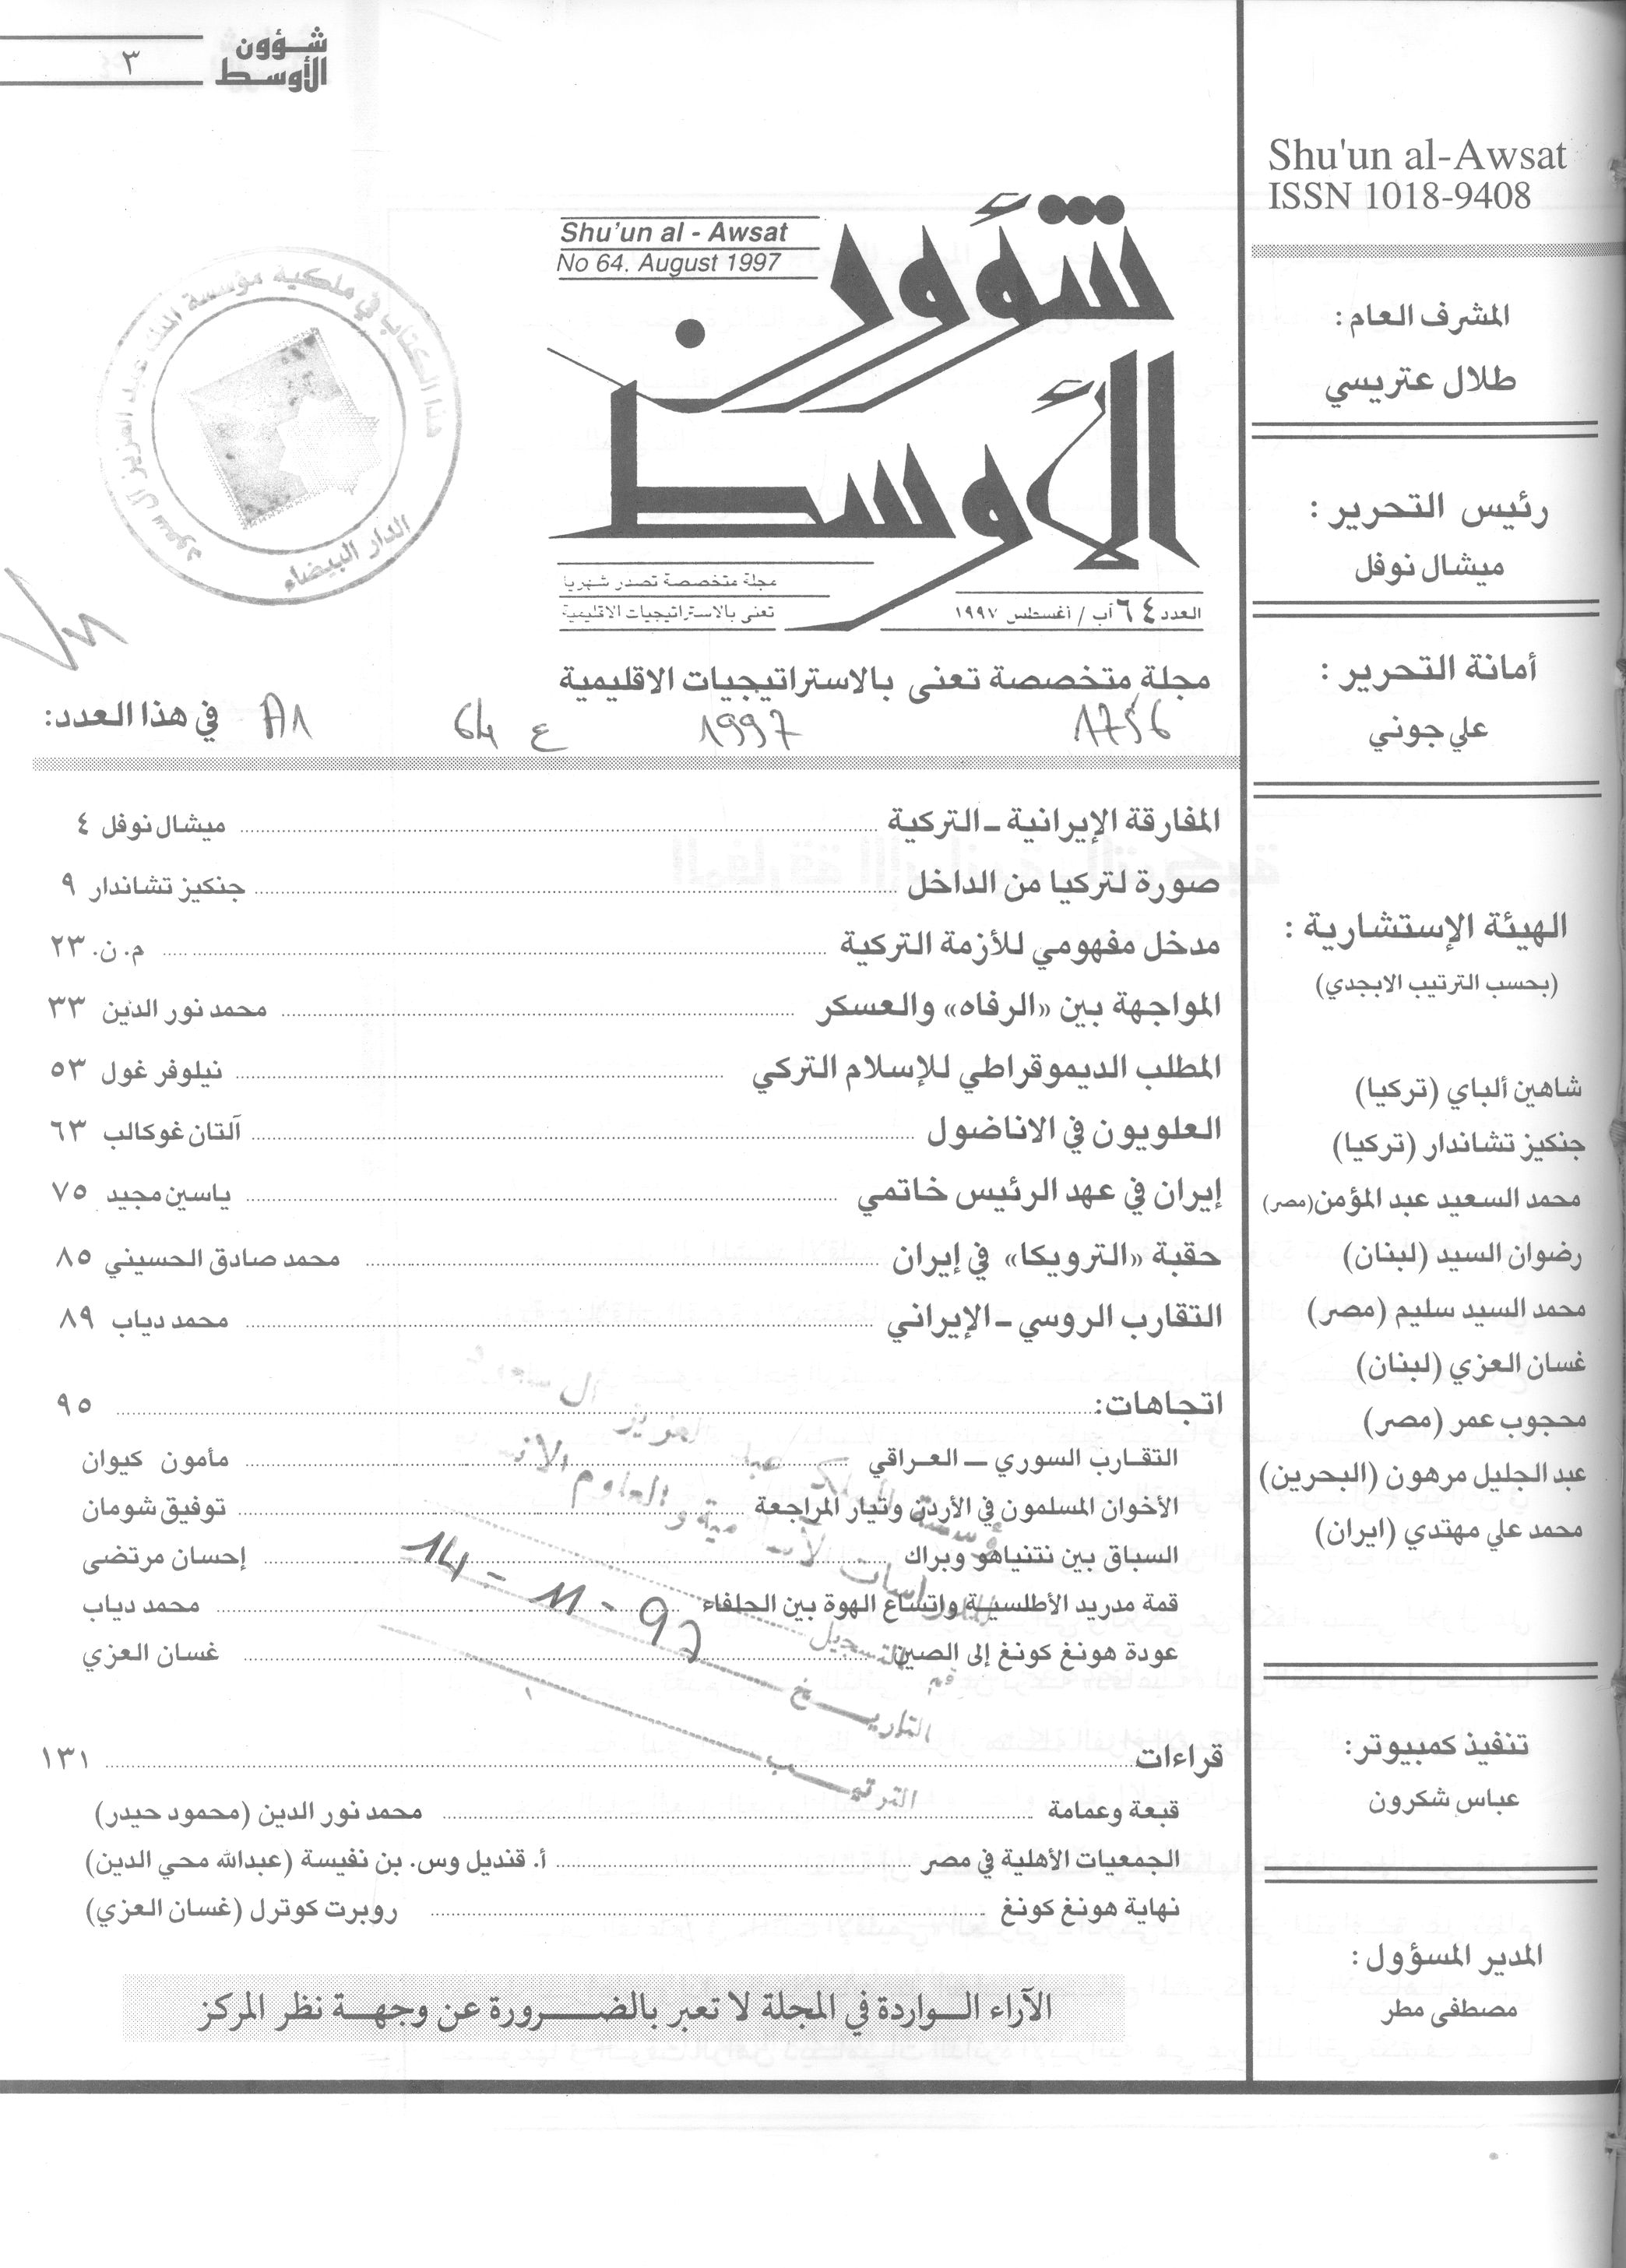 شؤون
الأوسط
٣
Shu'un al-Awsat
ISSN 1018-9408
المشرف العام :
طلال عتريسي
رئيس التحرير :
ميشال نوفل
أمانة التحرير :
علي جوني
الهيئة الإستشارية :
(بحسب الترتيب الابجدي)
شاهين ألباي (تركيا)
جنكيز تشاندار (تركيا)
محمد السعيد عبد المؤمن (مصر)
رضوان السيد (لبنان)
محمد السيد سليم (مصر)
غسان العزي (لبنان)
محجوب عمر (مصر)
عبد الجليل مرهون (البحرين)
محمد علي مهتدي (ايران)
تنفيذ كمبيوتر:
عباس شكرون
المدير المسؤول :
مصطفى مطر
Shu'un al - Awsat
No 64. August 1997
شؤون
الأوسط
مجلة متخصصة تصدر شهريا
تعنى بالاستراتيجيات الاقليمية
العدد ٦٤ آب / أغسطس ١٩٩٧
هذا الكتاب في ملكية مؤسسة الملك عبد العزيز آل سعود
الدار البيضاء
مجلة متخصصة تعنى بالاستراتيجيات الاقليمية
1756 1997 ع 64 A1
في هذا العدد:
المفارقة الإيرانية ـ التركية ........ ميشال نوفل ٤
صورة لتركيا من الداخل ........ جنكيز تشاندار ٩
مدخل مفهومي للأزمة التركية ........ م. ن. ٢٣
المواجهة بين «الرفاه» والعسكر ........ محمد نور الدين ٣٣
المطلب الديموقراطي للإسلام التركي ........ نيلوفر غول ٥٣
العلويون في الاناضول ........ آلتان غوكالب ٦٣
إيران في عهد الرئيس خاتمي ........ ياسين مجيد ٧٥
حقبة «الترويكا» في إيران ........ محمد صادق الحسيني ٨٥
التقارب الروسي ـ الإيراني ........ محمد دياب ٨٩
اتجاهات: ........ ٩٥
التقارب السوري ـ العراقي ........ مأمون كيوان
الأخوان المسلمون في الأردن وتيار المراجعة ........ توفيق شومان
السباق بين نتنياهو وبراك ........ إحسان مرتضى
قمة مدريد الأطلسية واتساع الهوة بين الحلفاء ........ محمد دياب
عودة هونغ كونغ إلى الصين ........ غسان العزي
عبد العزيز آل سعود
التسجيل
التاريخ
14 - 11 - 97
الترتيب
قراءات ........ ١٣١
قبعة وعمامة ........ محمد نور الدين (محمود حيدر)
الجمعيات الأهلية في مصر ........ أ. قنديل وس. بن نفيسة (عبدالله محي الدين)
نهاية هونغ كونغ ........ روبرت كوترل (غسان العزي)
الآراء الـواردة في المجلة لا تعبر بالضـرورة عن وجهـة نظر المركز